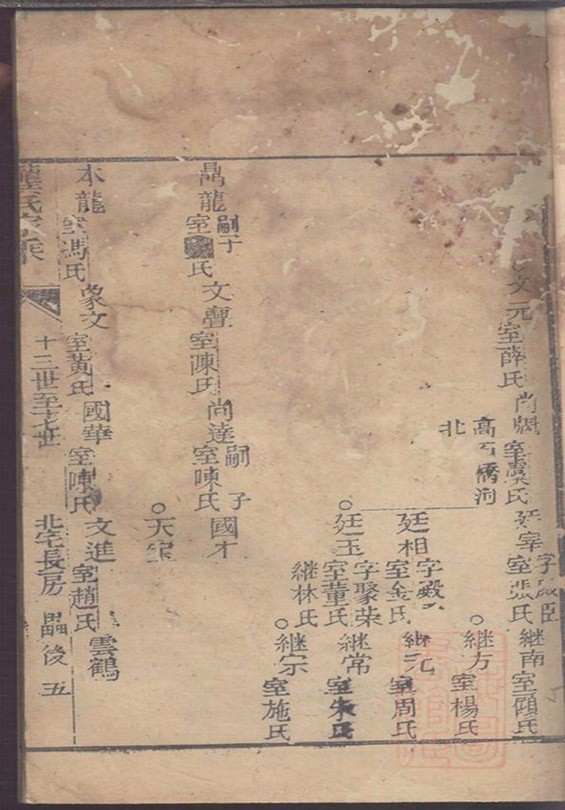 文元 室薛氏 尚 室龔氏 廷宰 字宸臣 室張氏 繼南 室顧氏
高石橋河北
○繼方 室楊氏
廷相 字殿 室金氏 継元 室周氏
○廷玉 字聚荣 室董氏 継林氏 継常 室朱氏
○継宗 室施氏
鼎龍 嗣子 室氏 文 室陳氏 尚達 嗣子 室陳氏 國才
○天宝
本龍 室馮氏 象文 室黃氏 國華 室陳氏 文進 室趙氏 雲鶴
龔氏家乘 十三世至十七世 北宅長房 後五